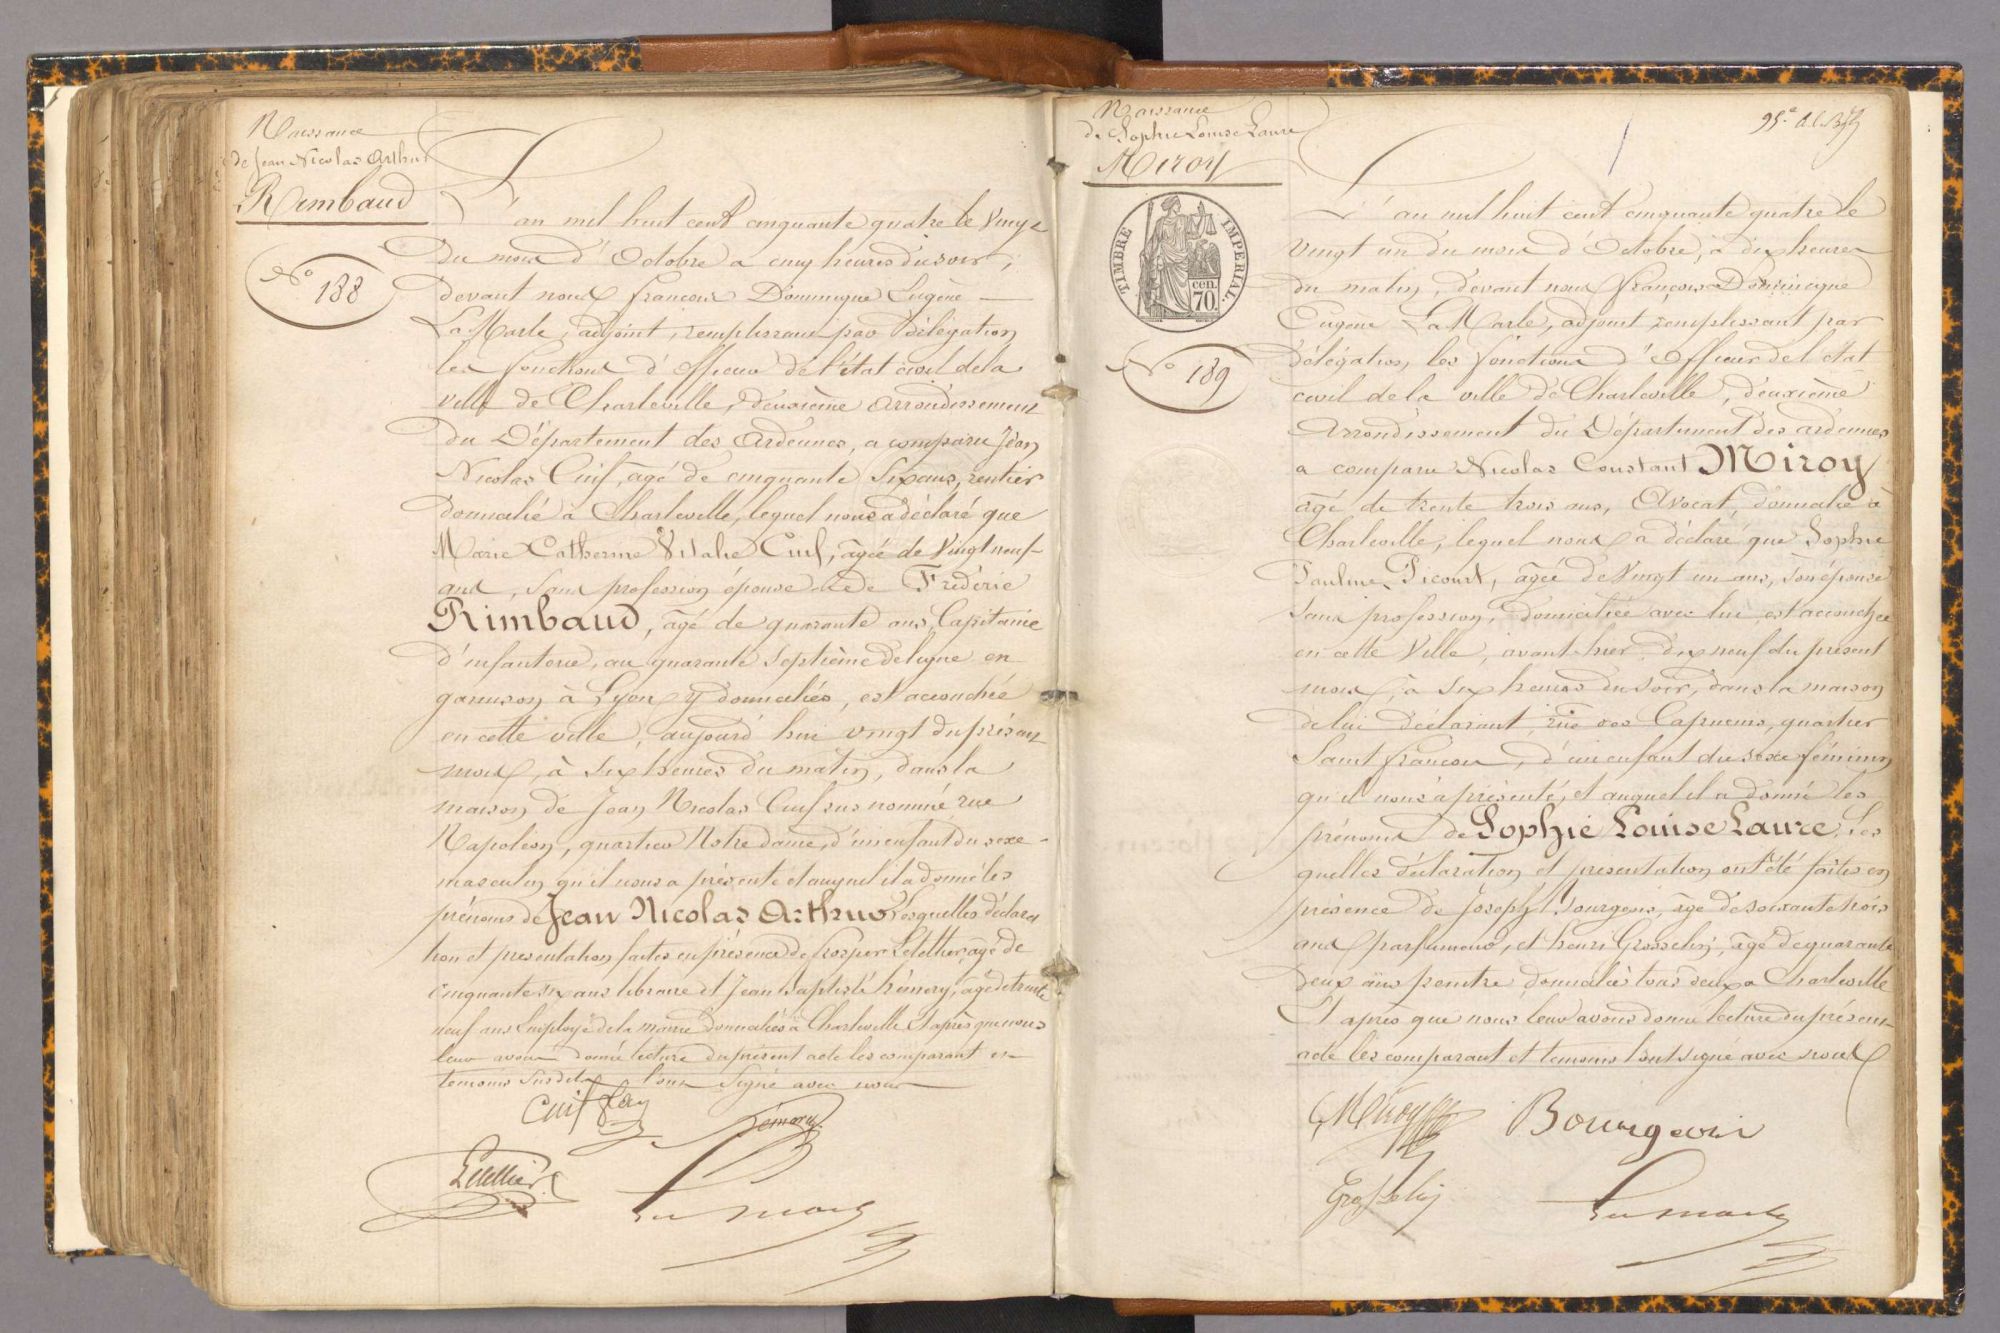 Naissance
de Jean Nicolas Arthur
Rimbaud
N° 188
L'an mil huit cent cinquante quatre le vingt
du mois d'Octobre a cinq heures du soir,
devant nous François Dominique Eugène
La Marle, adjoint, remplissant par délégation
les fonctions d'officier de l'état civil de la
ville de Charleville, deuxième arrondissement
du Département des Ardennes, a comparu Jean
Nicolas Cuif, âgé de cinquante six ans, rentier
domicilié à Charleville, lequel nous a déclaré que
Marie Catherine Vitalie Cuif, âgée de vingt neuf
ans, sans profession épouse de Frédéric
Rimbaud, âgé de quarante ans, Capitaine
d'infanterie, au quarante septième de ligne en
garnison à Lyon y domiciliés, est accouchée
en cette ville, aujourd'hui vingt du présent
mois, à six heures du matin, dans la
maison de Jean Nicolas Cuif sus nommé, rue
Napoléon, quartier Notre dame, d'un enfant du sexe
masculin qu'il nous a présenté et auquel il a donné les
prénoms de Jean Nicolas Arthur, lesquelles déclara
tion et présentation faites en présence de Prosper Letellier, âgé de
cinquante six ans libraire et Jean Baptiste hémery, âgé de trente
neuf ans Employé de la mairie domiciliés à Charleville Et après que nous
leur avons donné lecture du présent acte les comparant et
temoins susdits l'ont signé avec nous
Cuif
hémery
Letellier
La Marle
Naissance
de Sophie Louise Laure
Miroy
TIMBRE IMPERIAL.
cen. 70
N° 189
95e
L'an mil huit cent cinquante quatre le
vingt un du mois d'Octobre, à dix heures
du matin, devant nous François Dominique
Eugène La Marle, adjoint remplissant par
délégation, les fonctions d'officier de l'état
civil de la ville de Charleville, deuxième
Arrondissement du Département des ardennes
a comparu Nicolas Constant Miroy
âgé de trente trois ans, Avocat, domicilié à
Charleville, lequel nous a déclaré que Sophie
Pauline Picourt, âgée de vingt un ans, son épouse
sans profession, domiciliée avec lui, est accouchée
en cette Ville, avant hier dix neuf du présent
mois, à six heures du soir, dans la maison
de lui déclarant, rue des Capucins, quartier
Saint François, d'un enfant du sexe féminin
qu'il nous a présenté, et auquel il a donné les
prénoms de Sophie Louise Laure. Les
quelles déclaration et présentation ont été faites en
présence de Joseph Bourgeois, âgé de soixante trois
ans parfumeur, et henri Grosselin, âgé de quarante
deux ans peintre, domiciliés tous deux a Charleville
Et après que nous leur avons donné lecture du présent
acte les comparant et temoins l'ont signé avec nous
C Miroy
Bourgeois
Grosselin
La Marle